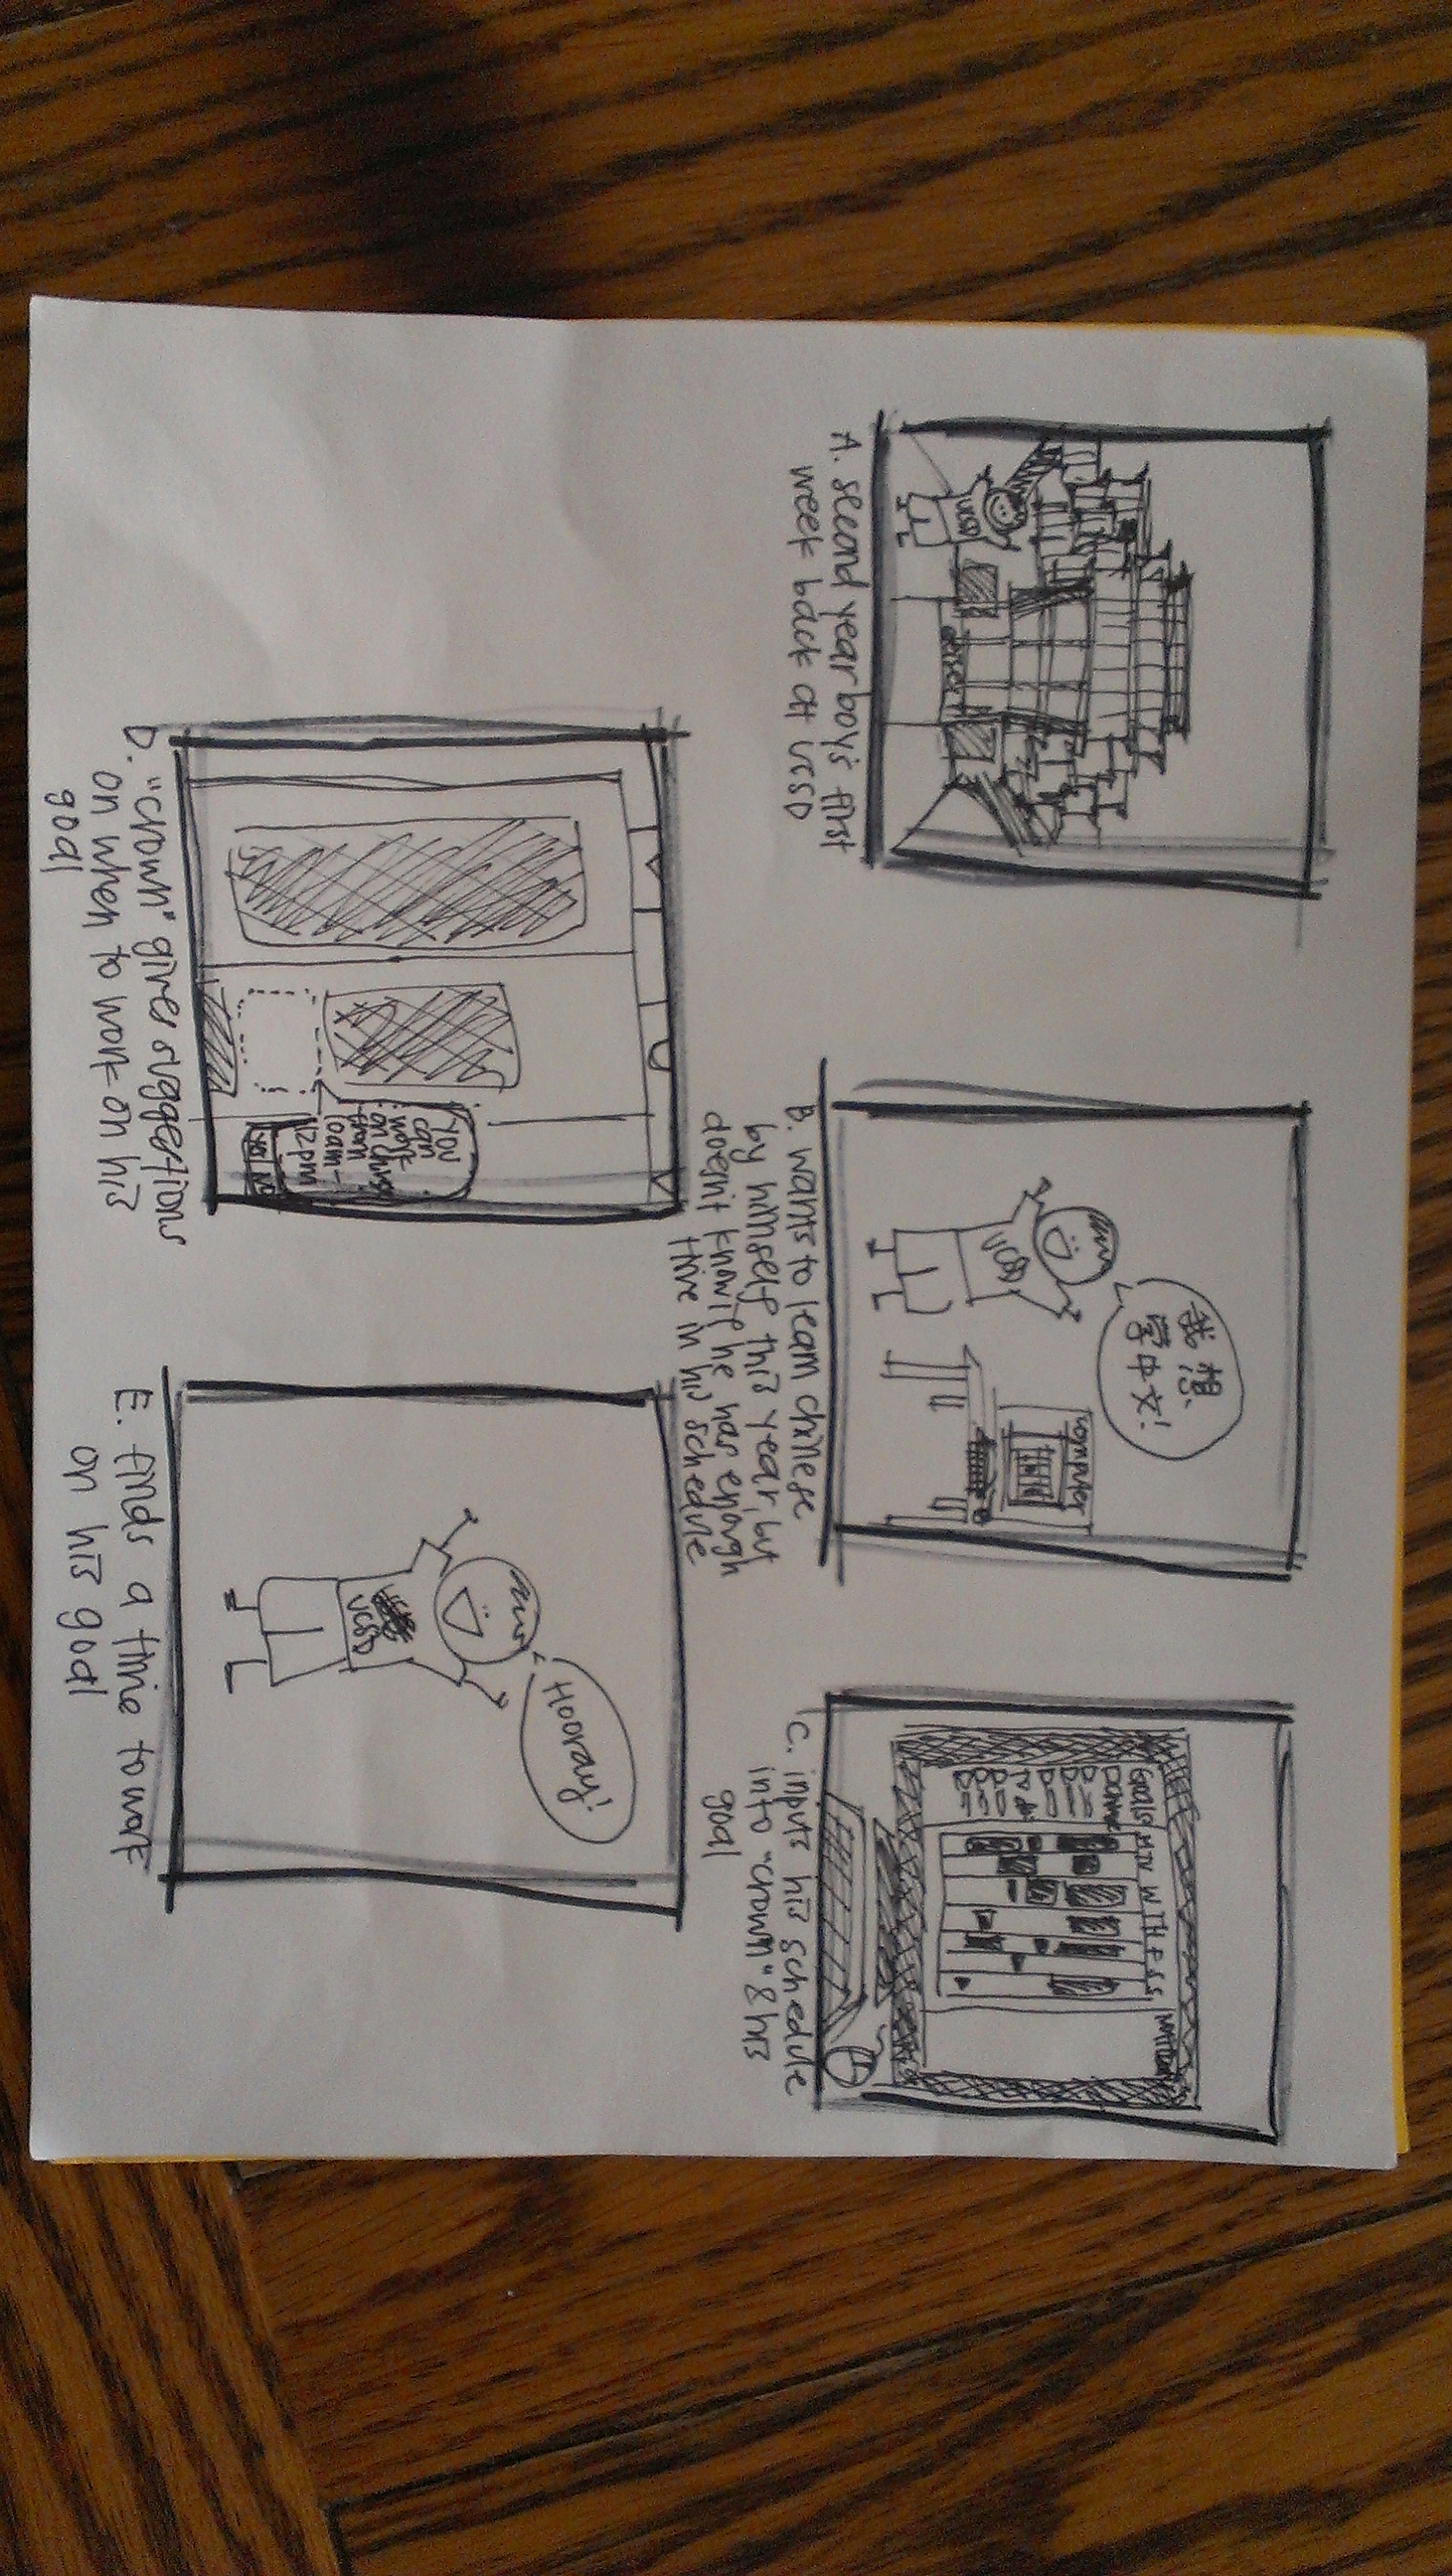 UCSD
GEISEL
A. second year boy's first
week back at UCSD
我想
学中文!
UCSD
computer
B. wants to learn chinese
by himself this year, but
doesn't know if he has enough
time in his schedule
Goals
M TU W TH F S S
C. inputs his schedule
into "crown" & his
goal
YOU
can
work
on
from
10am-
12pm
D. "crown" gives suggestions
on when to work on his
goal
Hooray!
UCSD
E. finds a time to work
on his goal